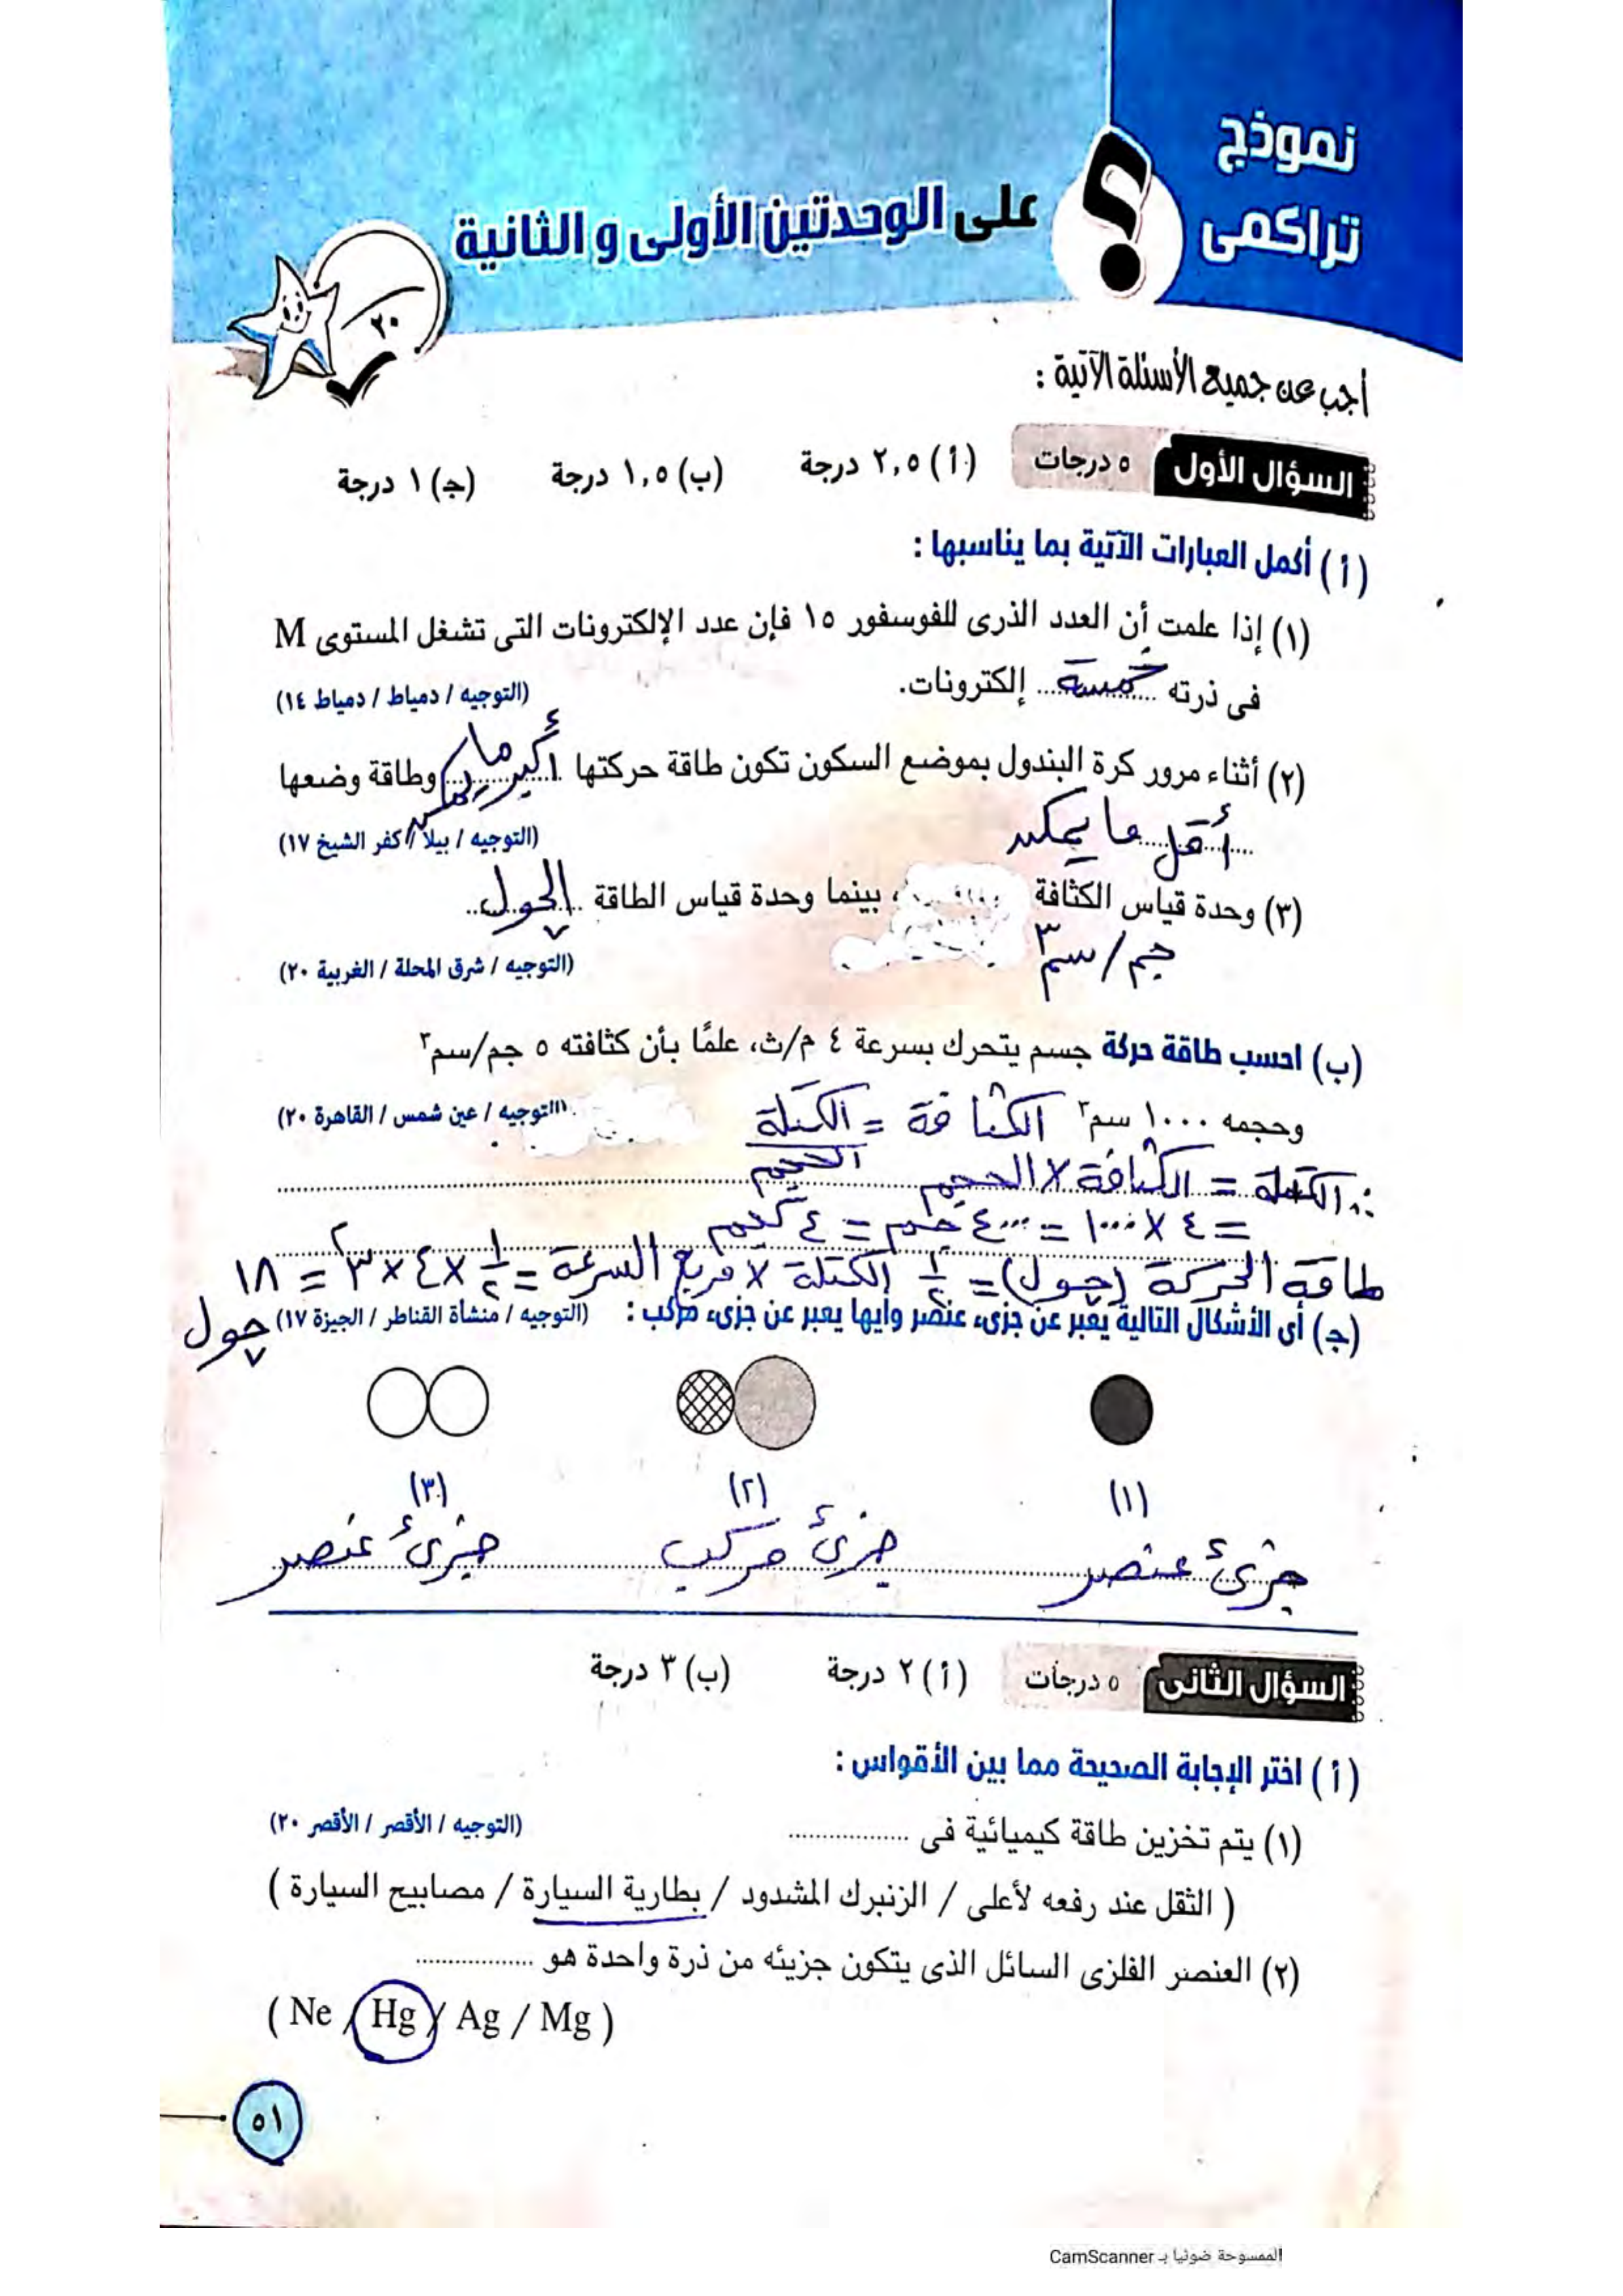 نموذج
تراكمى
؟ على الوحدتين الأولى و الثانية
٢٠
أجب عن جميع الأسئلة الآتية :
السؤال الأول ٥ درجات (أ) ٢,٥ درجة (ب) ١,٥ درجة (ج) ١ درجة
(أ) أكمل العبارات الآتية بما يناسبها :
(١) إذا علمت أن العدد الذرى للفوسفور ١٥ فإن عدد الإلكترونات التى تشغل المستوى M
فى ذرته خمسة إلكترونات. (التوجيه / دمياط / دمياط ١٤)
(٢) أثناء مرور كرة البندول بموضع السكون تكون طاقة حركتها أكبر ما يمكن وطاقة وضعها
أقل ما يمكن (التوجيه / بيلا / كفر الشيخ ١٧)
(٣) وحدة قياس الكثافة ، بينما وحدة قياس الطاقة الجول
جم/سم٣ (التوجيه / شرق المحلة / الغربية ٢٠)
(ب) احسب طاقة حركة جسم يتحرك بسرعة ٤ م/ث، علمًا بأن كثافته ٥ جم/سم٣
وحجمه ١٠٠٠ سم٣ الكثافة = الكتلة (التوجيه / عين شمس / القاهرة ٢٠)
الحجم
∴ الكتلة = الكثافة × الحجم
= ٤ × ١٠٠٠ = ٤٠٠٠ جم = ٤ كجم
طاقة الحركة (جول) = ١/٢ الكتلة × مربع السرعة = ١/٢ × ٤ × ٣٢ = ١٨
جول
(ج) أى الأشكال التالية يعبر عن جزىء عنصر وأيها يعبر عن جزىء مركب : (التوجيه / منشأة القناطر / الجيزة ١٧)
(١) (٢) (٣)
جزئ عنصر جزئ مركب جزئ عنصر
السؤال الثانى ٥ درجات (أ) ٢ درجة (ب) ٣ درجة
(أ) اختر الإجابة الصحيحة مما بين الأقواس :
(١) يتم تخزين طاقة كيميائية فى .................. (التوجيه / الأقصر / الأقصر ٢٠)
( الثقل عند رفعه لأعلى / الزنبرك المشدود / بطارية السيارة / مصابيح السيارة )
(٢) العنصر الفلزى السائل الذى يتكون جزيئه من ذرة واحدة هو ..................
( Ne / Hg / Ag / Mg )
٥١
الممسوحة ضوئيا بـ CamScanner